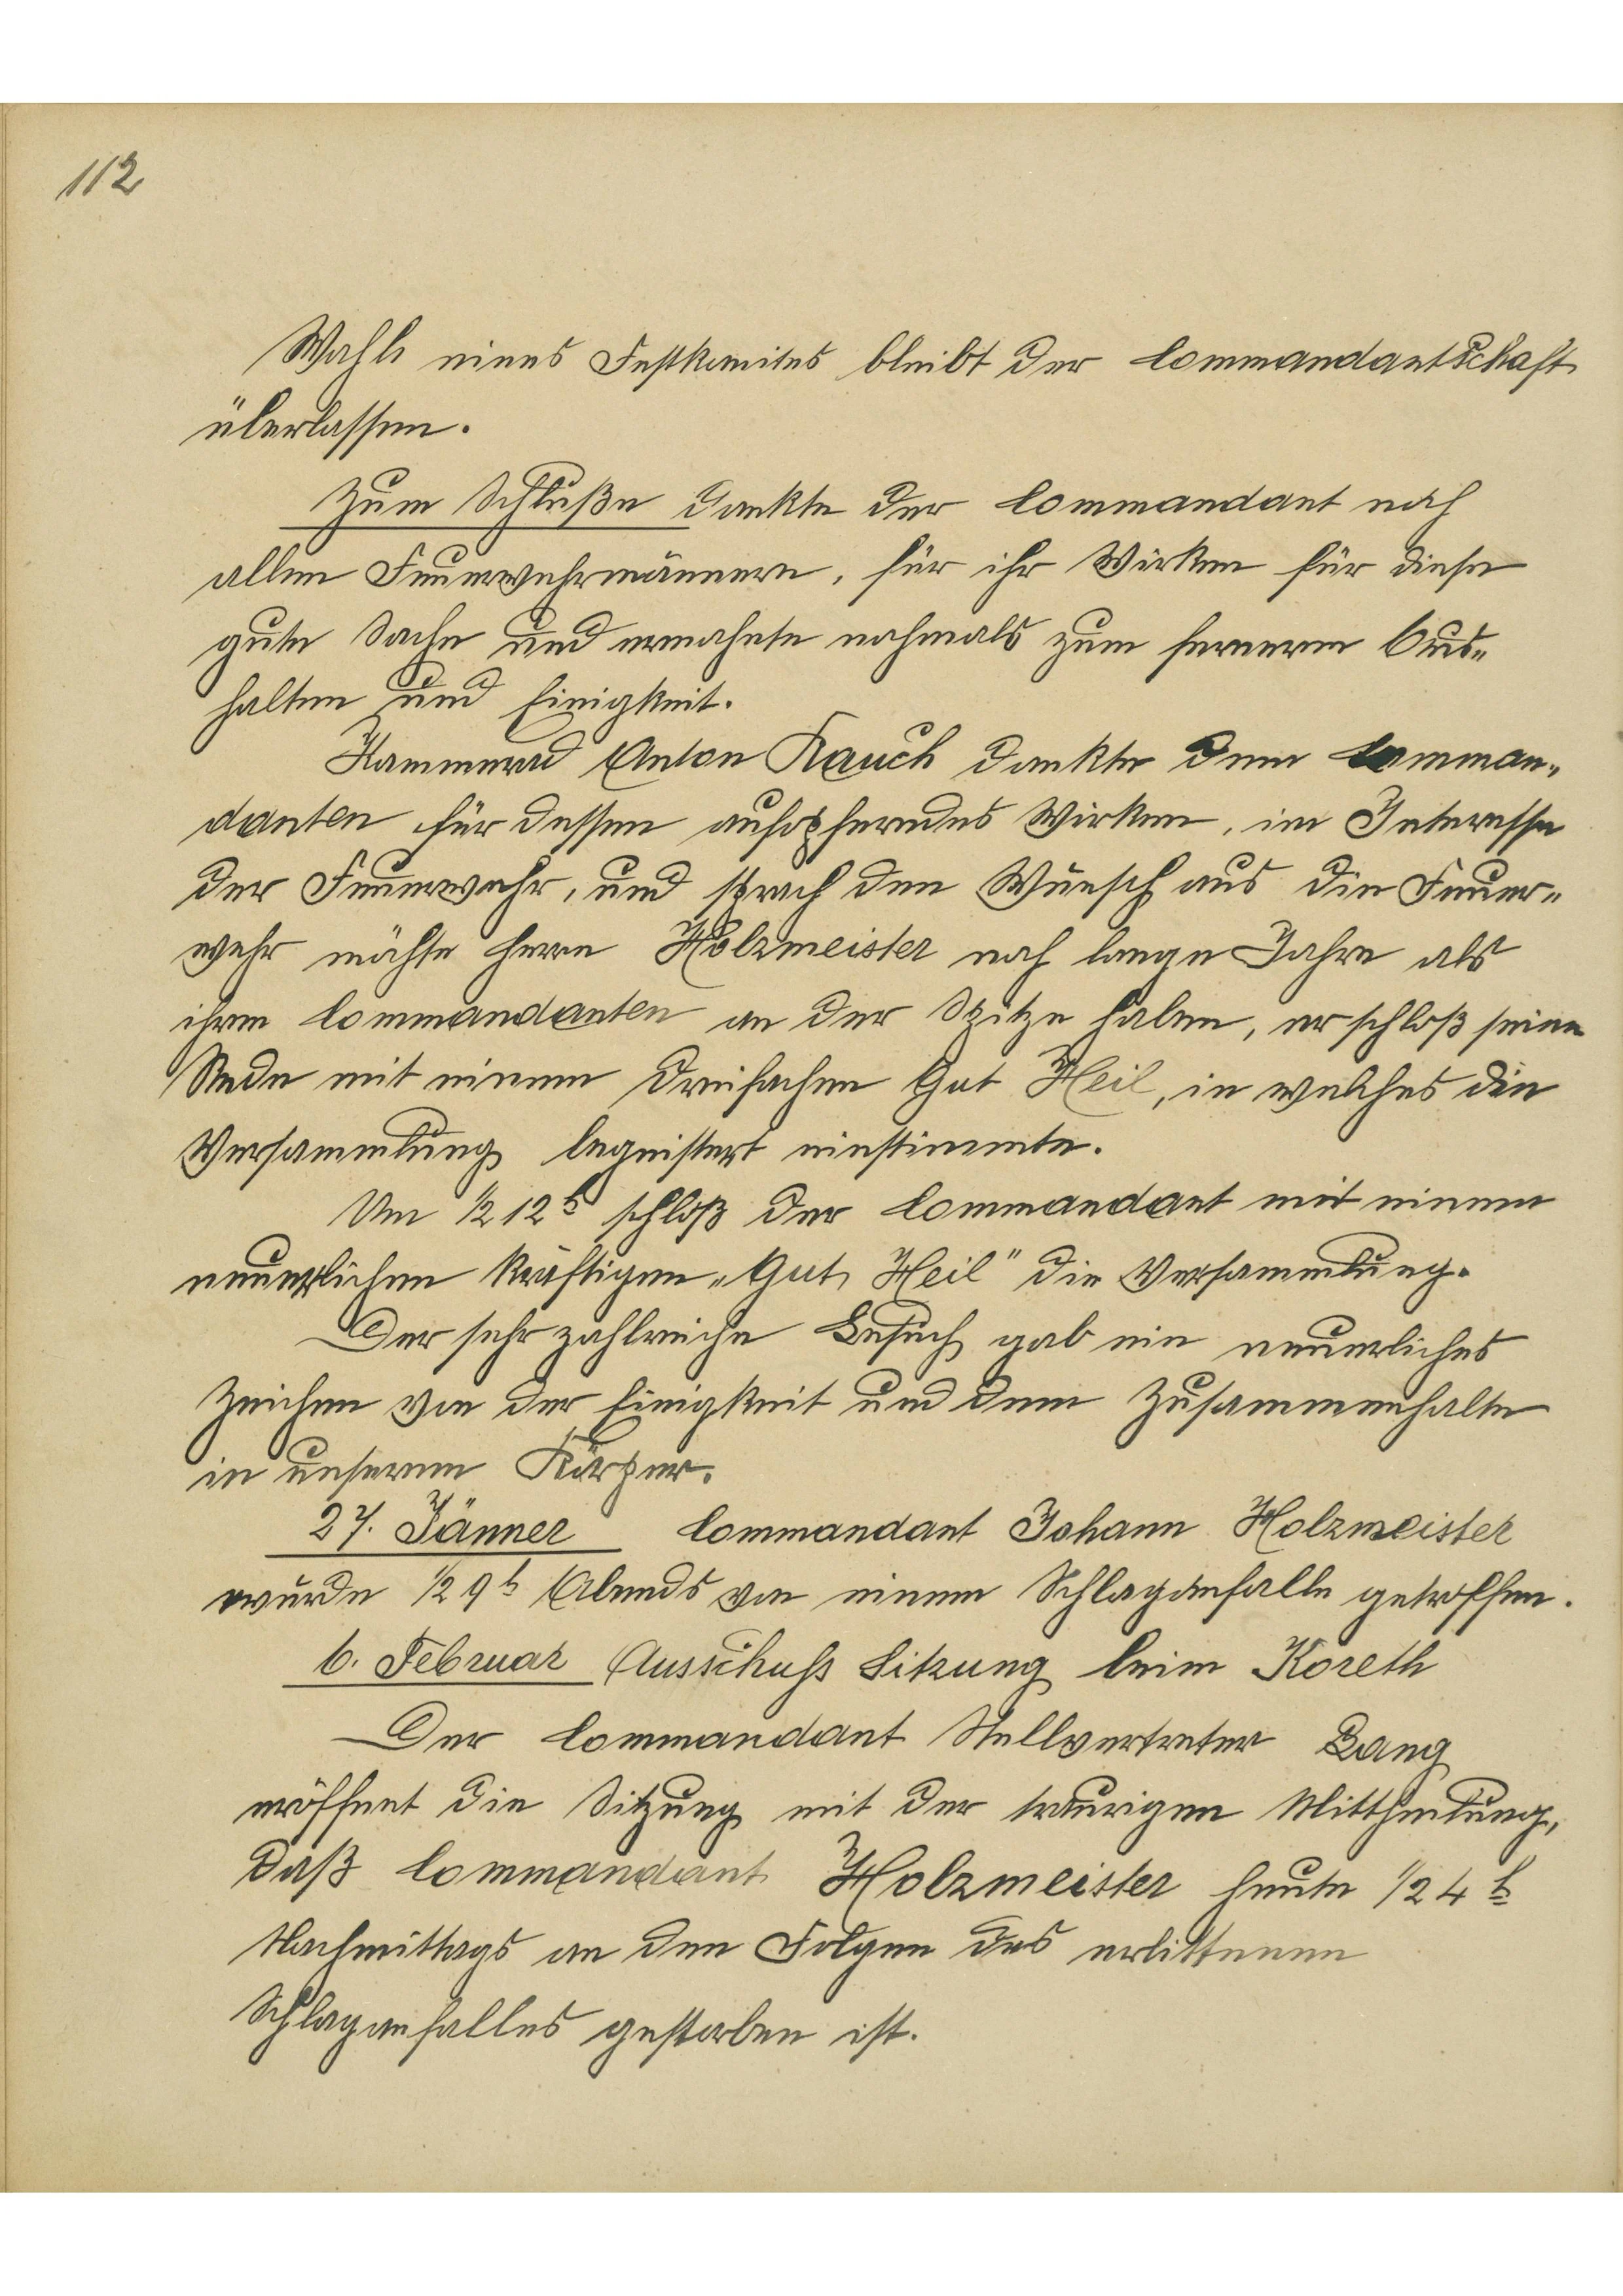 112
Wahl eines Festkomites bleibt der Commandantschaft
überlassen.
Zum Schluße dankte der Commandant noch
allen Feuerwehrmännern, für ihr Wirken für diese
gute Sache und ermahnte nochmals zum ferneren Aus-
halten und Einigkeit.
Kammerad Anton Rauch dankte dem Comman-
danten für dessen aufopferndes Wirken, im Interesse
der Feuerwehr, und sprach den Wunsch aus die Feuer-
wehr möchte Herrn Holzmeister noch lange Jahre als
ihren Commandanten an der Spitze haben, er schloß seine
Rede mit einem dreifachen Gut Heil, in welches die
Versammlung begeistert einstimmte.
Um ½ 12h schloß der Commandant mit einem
neuerlichen kräftigen „Gut Heil" die Versammlung.
Der sehr zahlreiche Besuch gab ein neuerliches
Zeichen von der Einigkeit und dem Zusammenhalte
in unserem Körper.
27. Jänner Commandant Johann Holzmeister
wurde ½ 9h Abends von einem Schlaganfalle getroffen.
6. Februar Ausschuß Sitzung beim Koreth
Der Commandant Stellvertreter Bang
eröffnet die Sitzung mit der traurigen Mittheilung,
daß Commandant Holzmeister heute ½ 4 h
Nachmittags an den Folgen des erlittenen
Schlaganfalles gestorben ist.